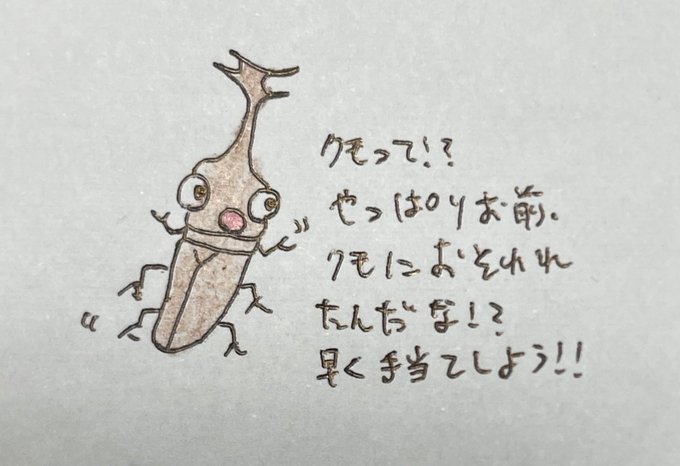 クモって!?
やっぱりお前。
クモにおそわれ
たんだな!?
早く手当てしよう!!